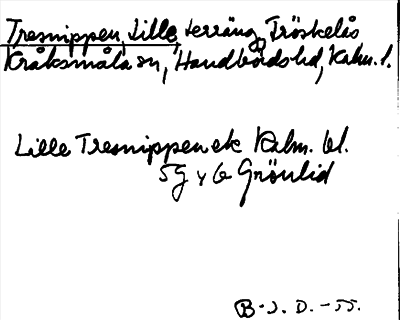 Tresnippen, Lille terräng, Tröskelås
Kråksmåla sn, Handbörds hd, Kalm. l.
Lille Tresnippen ek Kalm. bl.
5G y G Grönlid
B. J. D. - 55.